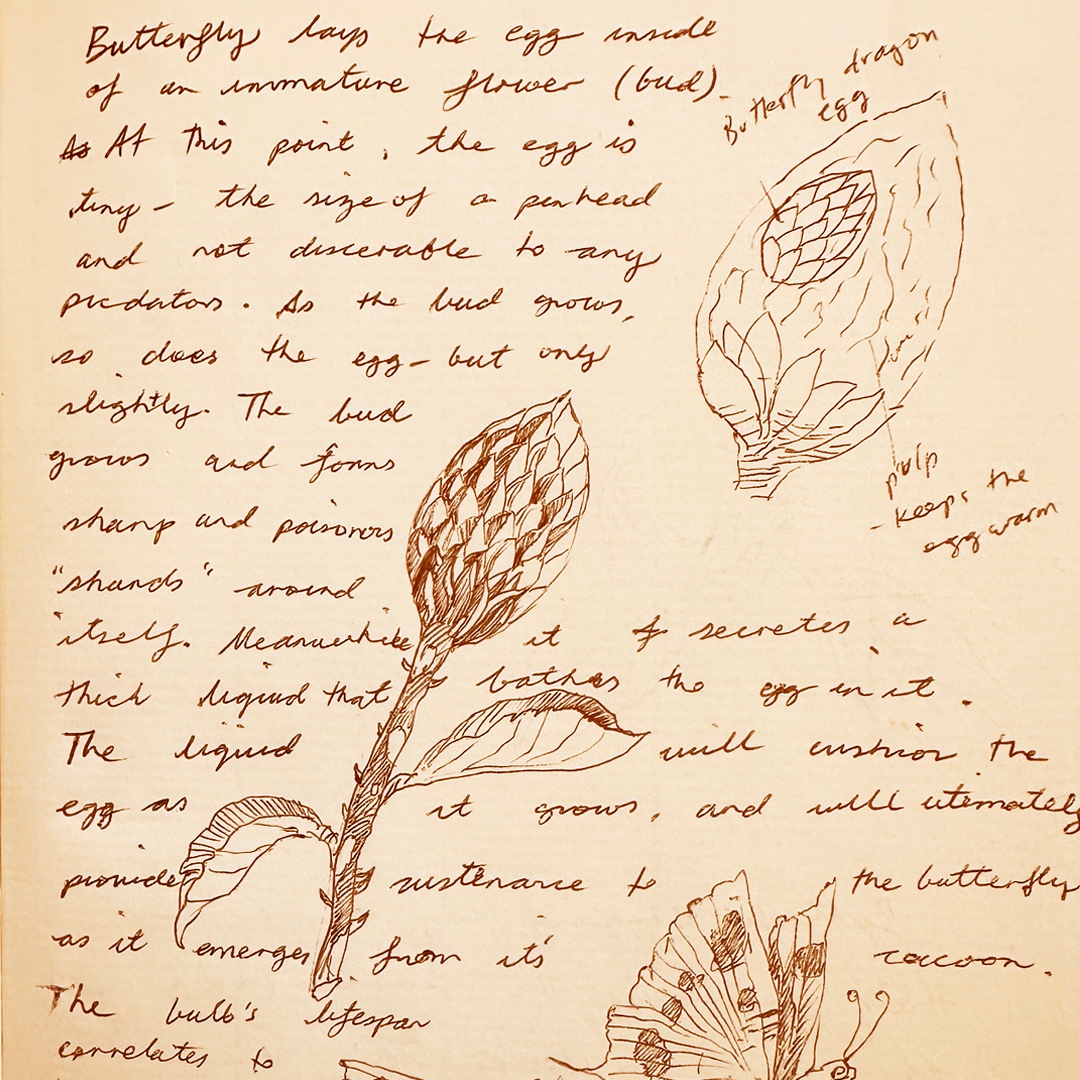 Butterfly lays the egg inside
of an immature flower (bud).
As At this point, the egg is
tiny - the size of a pinhead
and not discerable to any
predators. As the bud grows,
so does the egg - but only
slightly. The bud
grows and forms
sharp and poisonous
"shards" around
itself. Meanwhile it secretes a
thick liquid that bathes the egg in it.
The liquid will cushion the
egg as it grows, and will utimately
provide sustenance to the butterfly
as it emerges from it's cacoon.
The bulb's lifespan
correlates to
Butterfly dragon
egg
pulp
- keeps the
egg warm